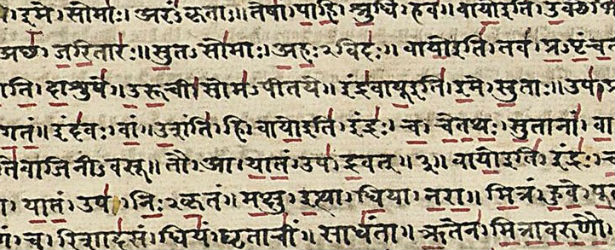 । इमे। सोमाः। अरंऽकृताः॥ तेषां। पाहि। श्रुधि। हवं॥ वायोइति।
अछ। जरितारः॥ सुतऽसोमाः। अहःऽविदः॥ वायोइति। तव। प्रऽपृंच
ति। दाशुषे। उरूची। सोमऽपीतये॥ इंद्रवायूइति। इमे। सुताः॥ उप।
गतं॥ इंदवः। वां। उशंति। हि॥ वायोइति। इंद्रः। च। चेतथः। सुतानां। वा
वाजिनीऽवसू॥ तौ। आ। यातं। उप। द्रवत्॥३॥ वायोइति। इंद्रः। च
। यातं। उप। निःऽकृतं॥ मक्षु। इत्था। धिया। नरा॥ मित्रं। हुवे। पू
च। रिशादसं॥ धियं। घृताचीं। साधंता॥ ऋतेन। मित्रावरुणौ